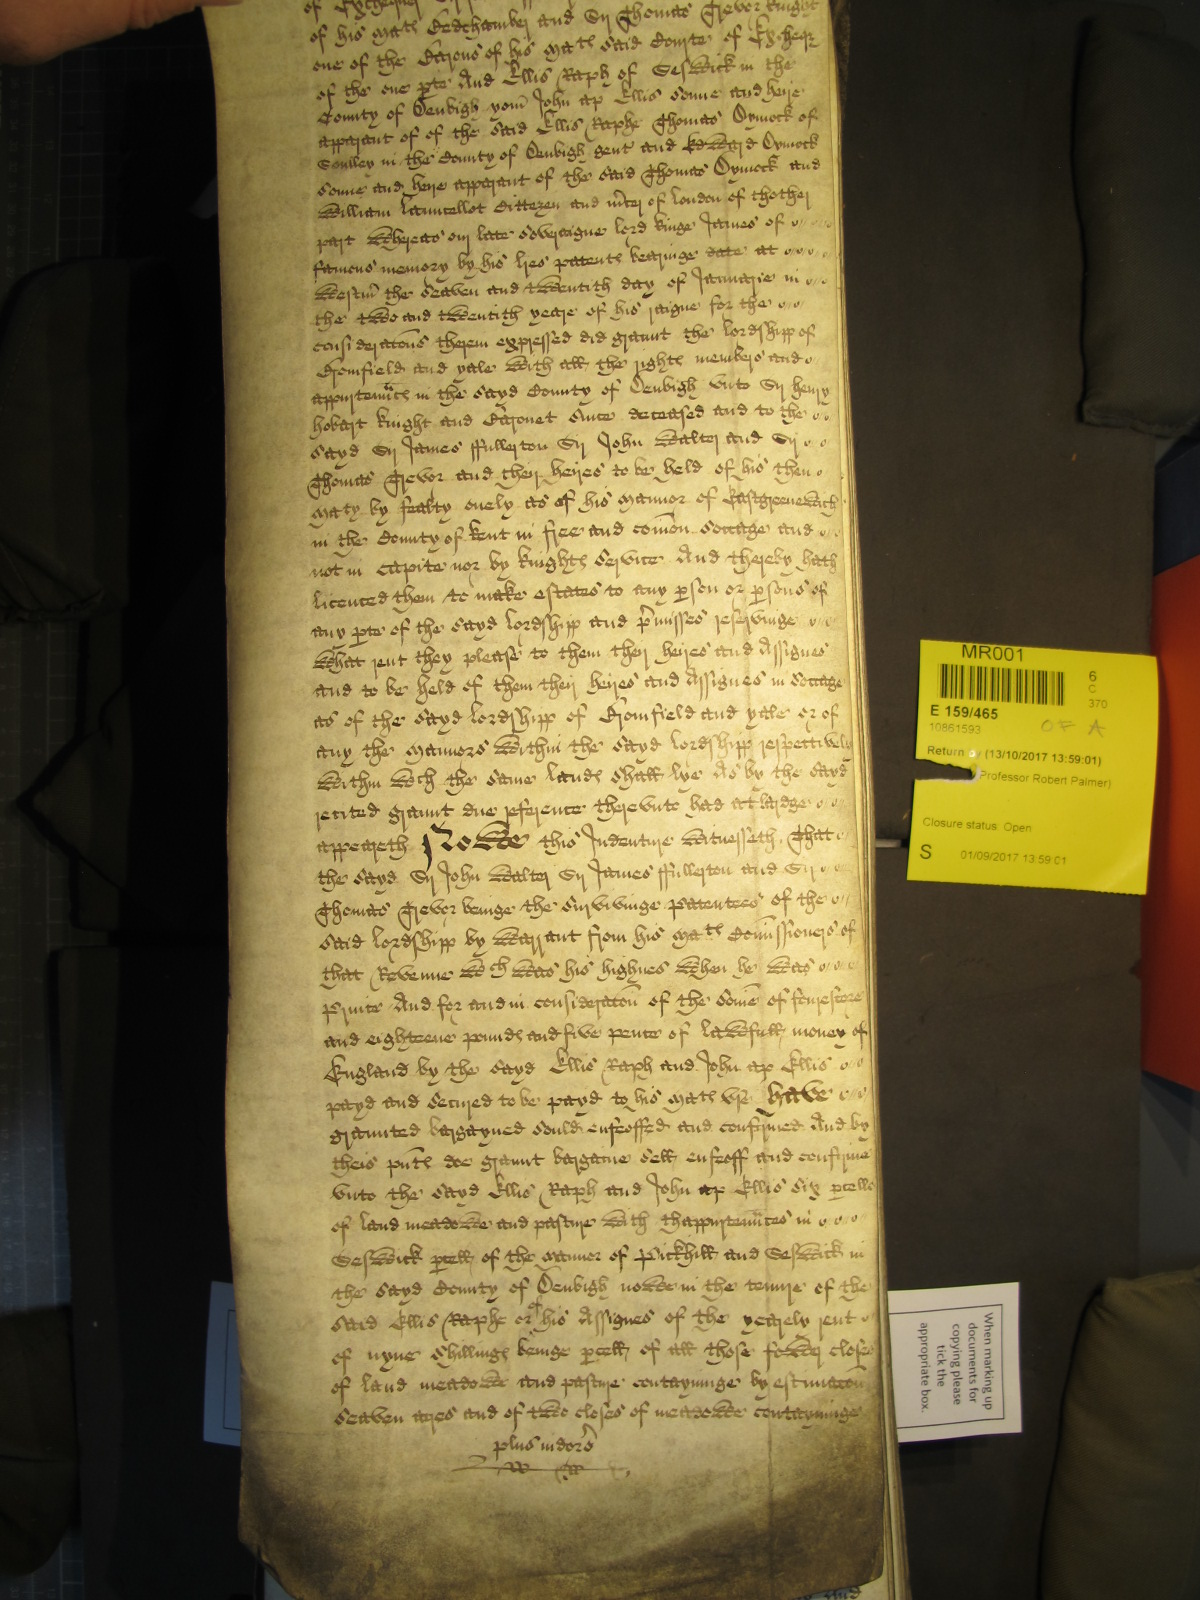 of Exchequer
of his Ma<sup>tes</sup> Bedchamber and Sir Thomas Trevor knight
one of the Barons of his Ma<sup>tes</sup> said Courte of Excheqr
of the one pte And Ellis Raph of Seswick in the
County of Denbigh yom John ap Ellis sonne and heire
apparant of of the said Ellis Raphe Thomas Dymock of
in the County of Denbigh gent and Edward Dymock
sonne and heire apparant of the said Thomas Dymock and
William Launcellot Cittezen and of London of thother
part Whereas our late soveraigne lord kinge James of
famous memory by his lres patents bearinge date at
Westm the seaven and twentith day of Januarie in
the two and twentith yeare of his raigne for the
consideracons therein expressed did graunt the lordshipp of
Bromfield and yale with all the rights members and
appurtennces in the sayd County of Denbigh unto Sir henry
hobart knight and Baronet since deceased and to the
sayd Sir James ffullerton Sir John Walter and Sir
Thomas Trevor and their heires to be held of his then
Ma<sup>ty</sup> by fealty onely as of his Mannor of Eastgreenewich
in the County of kent in free and comon soccage and
not in capite nor by knights service And thereby hath
licenced them to make estates to any pson or psons of
any pte of the sayd lordshipp and pmisses reservinge
What rent they please to them their heires and Assignes
and to be held of them their heires and Assignes in soccage
as of the sayd lordshipp of Bromfield and yale or of
any the mannors within the sayd lordshipp respectively
within w<sup>ch</sup> the same lands shall lye As by the sayd
recited graunt due reference therevnto had at lardge
appeareth Nowe this Indenture witnesseth That
the sayd Sir John Walter Sir James ffullerton and Sir
Thomas Trevor beinge the survivinge patentees of the
said lordshipp by Warrant from his Ma<sup>tes</sup> Comissioners of
that Revenue w<sup>ch</sup> was his highnes when he was
Prince And for and in consideracon of the some of fourescore
and eighteene pounds and five pence of lawfull money of
England by the sayd Ellis Raph and John ap Ellis
payd and secured to be payd to his Ma<sup>tes</sup> vse have
graunted bargayned sould enfeoffed and confirmed And by
theis pnts doe graunt bargaine sell enfeoff and confirme
vnto the sayd Ellis Raph and John ap Ellis six pcells
of land meadowe and pasture with thappurtennces in
Seswick pcell of the mannor of Pickhill and Seswick in
the sayd County of Denbigh nowe in the tenure of the
said Ellis Raphe or of his Assignes of the yearely rent
of nyne shillings beinge pcell of all those fower closes
of land meadowe and pasture contayninge by estimacon
seaven acres and of two closes of meadowe contayninge
plus in dors
MR001
6
C
370
E 159/465
10861593
OF A
Return (13/10/2017 13:59:01)
Professor Robert Palmer)
Closure status: Open
S
01/09/2017 13:59:01
When marking up
documents for
copying please
tick the
appropriate box.